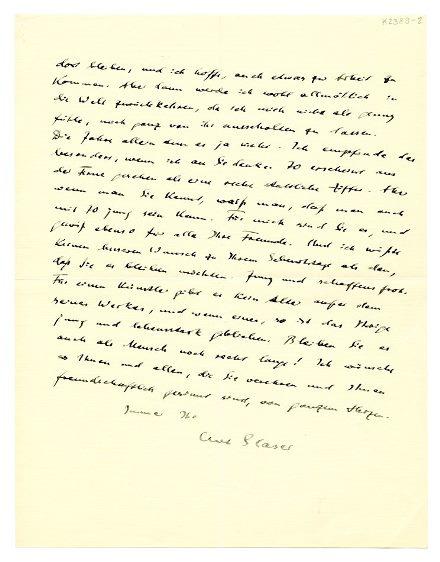 K2383-2
dort bleiben, und ich hoffe, auch etwas zur Arbeit zu
kommen. Aber dann werde ich wohl allmählich in
die Welt zurückkehren, da ich mich nicht alt genug
fühle, mich ganz von ihr ausschalten zu lassen.
Die Jahre allein tun es ja nicht. Ich empfinde das
besonders, wenn ich an Sie denke. 70 erscheint aus
der Ferne gesehen als eine recht stattliche Ziffer. Aber
wenn man Sie kennt, weiß man, daß man auch
mit 70 jung sein kann. Für mich sind Sie es, und
gewiß ebenso für alle Ihre Freunde. Und ich wüßte
keinen besseren Wunsch zu Ihrem Geburtstage als den,
daß Sie es bleiben möchten. Jung und schaffensfroh.
Für einen Künstler gibt es kein Alter außer dem
seiner Werke, und wenn eines, so ist das Ihrige
jung und lebensstark geblieben. Bleiben Sie es
auch als Mensch noch recht lange! Ich wünsche
es Ihnen und allen, die Sie verehren und Ihnen
freundschaftlich gesinnt sind, von ganzem Herzen.
Immer Ihr
Curt Glaser